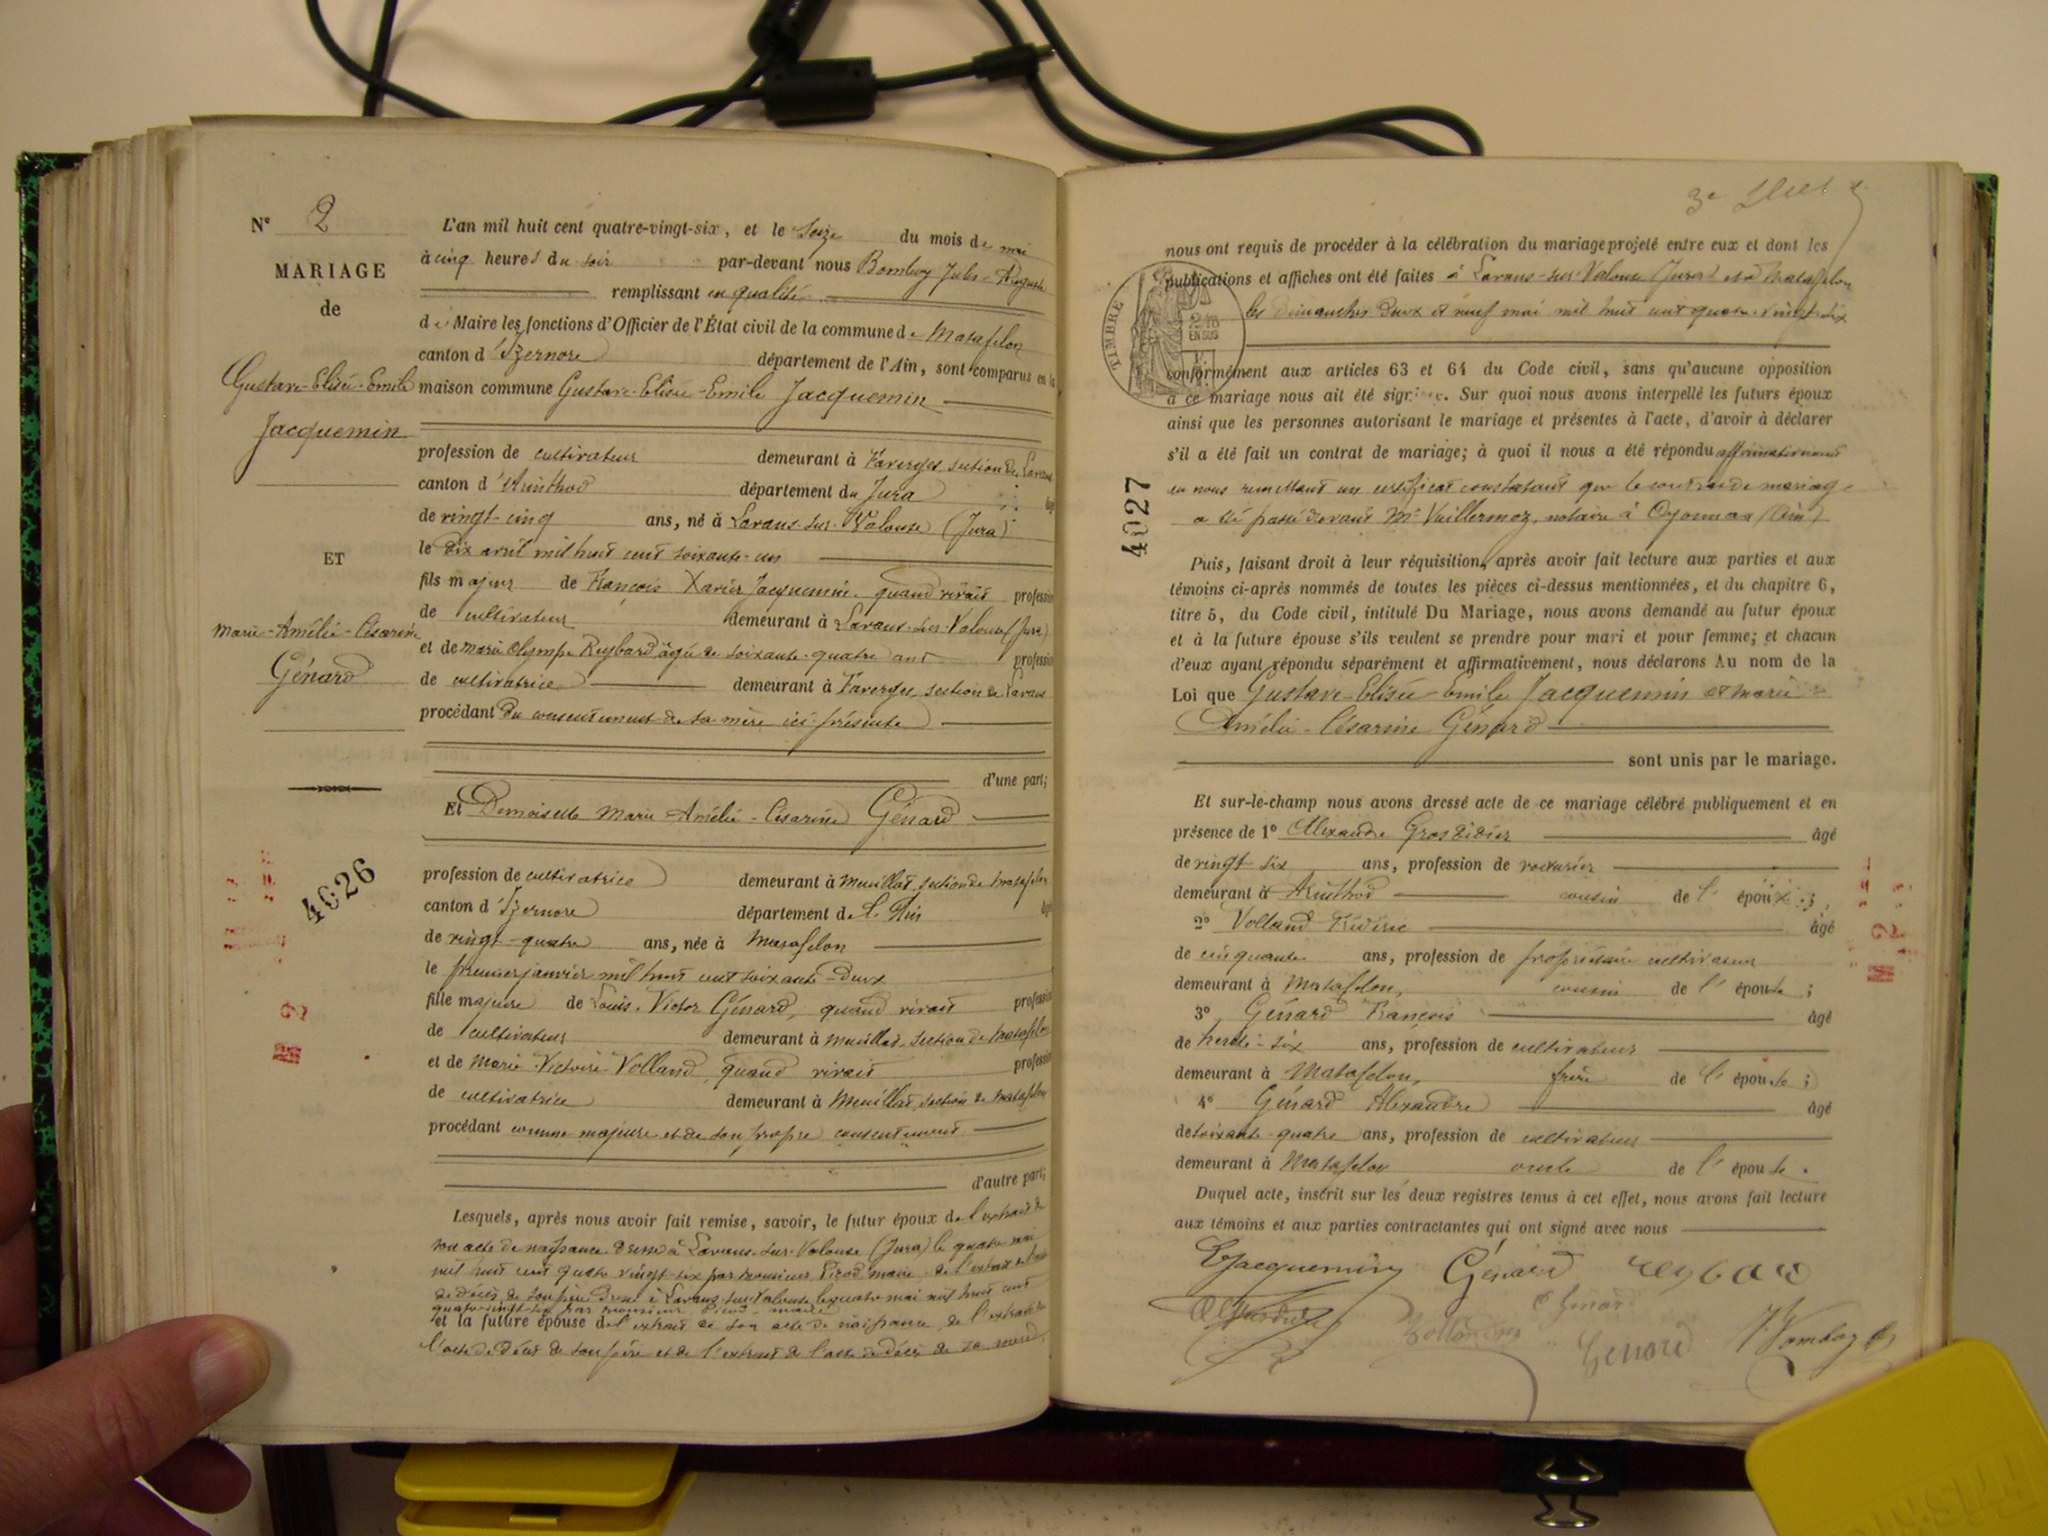 N° 2
MARIAGE
de
Gustave-Elisée-Emile
Jacquemin
ET
Marie-Amélie-Césarine
Génard
4026
L'an mil huit cent quatre-vingt-six, et le seize du mois de mai
à cinq heures du soir par-devant nous Jules-Auguste
remplissant en qualité
de Maire les fonctions d'Officier de l'État civil de la commune de Matafelon
canton d'Izernore département de l'Ain, sont comparus en la
maison commune Gustave-Elisée-Emile Jacquemin
profession de cultivateur demeurant à Faverges section de Lavans
canton d'Arinthod département du Jura âgé
de vingt-cinq ans, né à Lavans-sur-Valouse (Jura)
le dix avril mil huit cent soixante-un
fils majeur de François Xavier Jacquemin quand vivait profession
de cultivateur demeurant à Lavans-sur-Valouse (Jura)
et de Marie Olympe Reybard âgée de soixante-quatre ans profession
de cultivatrice demeurant à Faverges, section de Lavans
procédant du consentement de sa mère ici présente
d'une part;
Et Demoiselle Marie Amélie-Césarine Génard
profession de cultivatrice demeurant à Meuillat, section de Matafelon
canton d'Izernore département de l'Ain âgée
de vingt-quatre ans, née à Matafelon
le premier janvier mil huit cent soixante-deux
fille majeure de Louis-Victor Génard, quand vivait profession
de cultivateur demeurant à Meuillat, section de Matafelon
et de Marie-Victoire Volland, quand vivait profession
de cultivatrice demeurant à Meuillat, section de Matafelon
procédant comme majeure et de son propre consentement
d'autre part;
Lesquels, après nous avoir fait remise, savoir, le futur époux de l'extrait de
son acte de naissance dressé à Lavans-sur-Valouse (Jura) le quatre mai
mil huit cent quatre vingt-six par monsieur Picod maire, de l'extrait de l'acte
de décès de son père dressé à Lavans-sur-Valouse le quatre mai mil huit cent
quatre-vingt-six par monsieur Picod maire
et la future épouse de l'extrait de son acte de naissance, de l'extrait de
l'acte de décès de son père et de l'extrait de l'acte de décès de sa mère
nous ont requis de procéder à la célébration du mariage projeté entre eux et dont les
publications et affiches ont été faites à Lavans-sur-Valouse (Jura) et à Matafelon
les dimanches deux et neuf mai mil huit cent quatre-vingt-six
TIMBRE
conformément aux articles 63 et 64 du Code civil, sans qu'aucune opposition
à ce mariage nous ait été signifiée. Sur quoi nous avons interpellé les futurs époux
ainsi que les personnes autorisant le mariage et présentes à l'acte, d'avoir à déclarer
s'il a été fait un contrat de mariage; à quoi il nous a été répondu affirmativement
en nous remettant un certificat constatant que le contrat de mariage
a été passé devant Me Vuillermoz, notaire à Oyonnax (Ain)
4027
Puis, faisant droit à leur réquisition, après avoir fait lecture aux parties et aux
témoins ci-après nommés de toutes les pièces ci-dessus mentionnées, et du chapitre 6,
titre 5, du Code civil, intitulé Du Mariage, nous avons demandé au futur époux
et à la future épouse s'ils veulent se prendre pour mari et pour femme; et chacun
d'eux ayant répondu séparément et affirmativement, nous déclarons Au nom de la
Loi que Gustave-Elisée-Emile Jacquemin et Marie
Amélie-Césarine Génard
sont unis par le mariage.
Et sur-le-champ nous avons dressé acte de ce mariage célébré publiquement et en
présence de 1° Alexandre Grosdidier âgé
de vingt-six ans, profession de voiturier
demeurant à Arinthod cousin de l'époux;
2° Volland Frédéric âgé
de cinquante ans, profession de propriétaire cultivateur
demeurant à Matafelon, cousin de l'épouse;
3° Génard François âgé
de trente-six ans, profession de cultivateur
demeurant à Matafelon, frère de l'épouse;
4° Génard Alexandre âgé
de soixante-quatre ans, profession de cultivateur
demeurant à Matafelon oncle de l'épouse.
Duquel acte, inscrit sur les deux registres tenus à cet effet, nous avons fait lecture
aux témoins et aux parties contractantes qui ont signé avec nous
Jacquemin Génard reybard
Génard
Volland
Génard